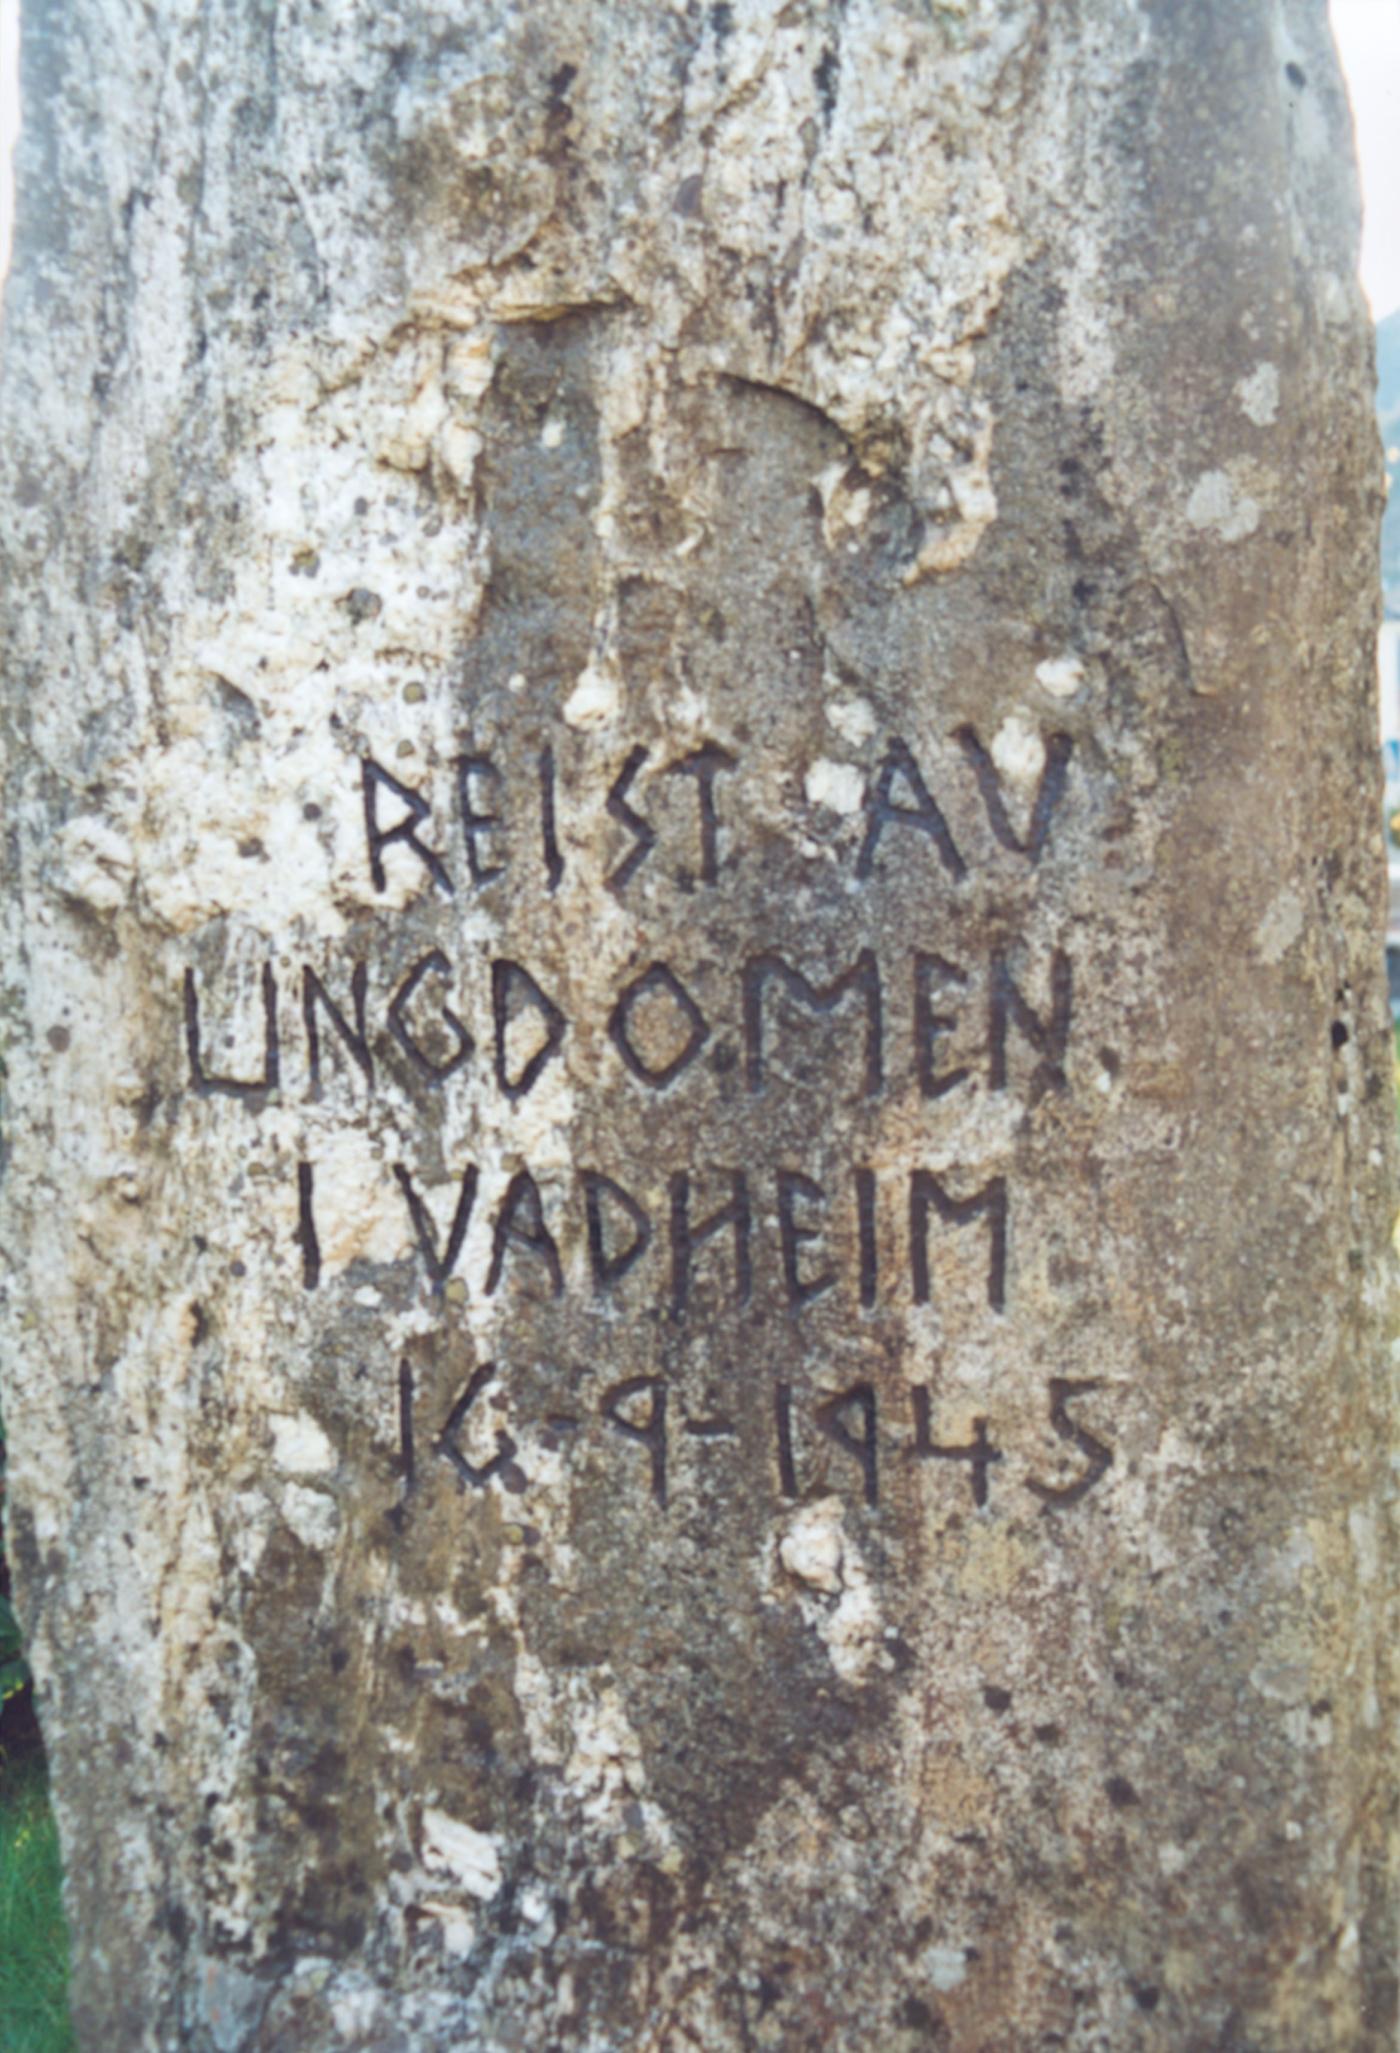 REIST AV
UNGDOMEN
I VADHEIM
16-9-1945